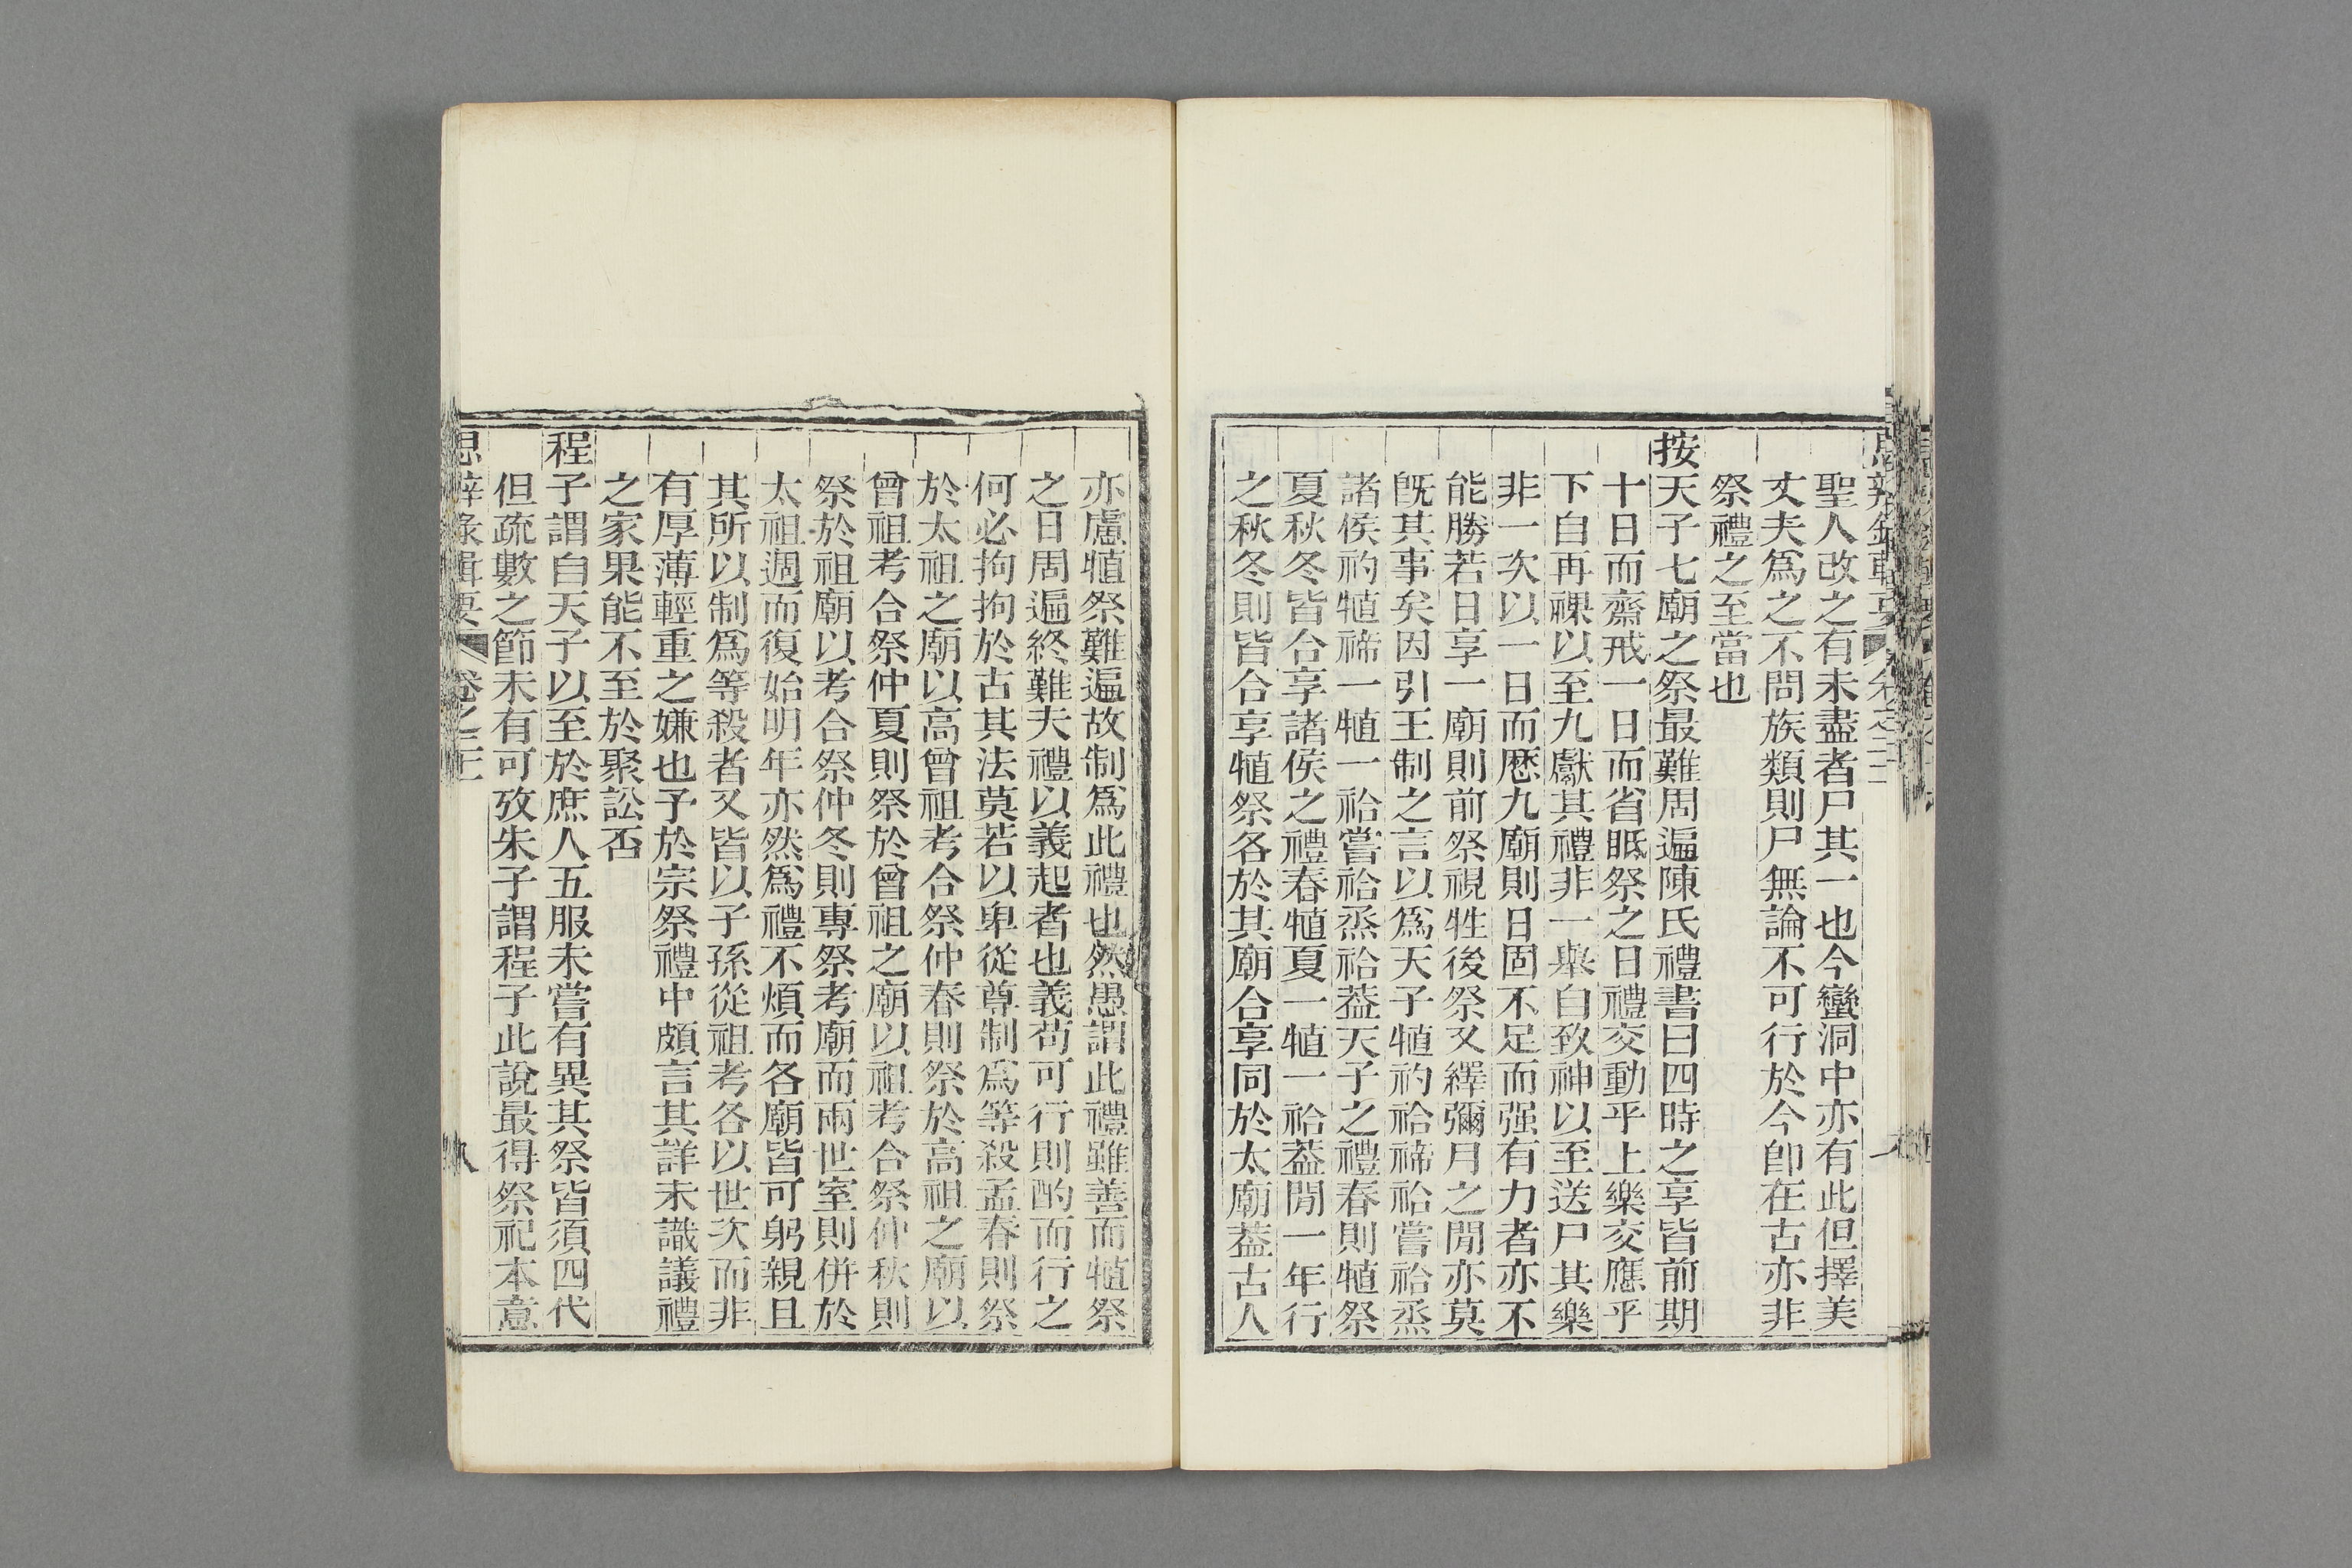 聖人改之有未盡者尸其一也今蠻洞中亦有此但擇美
丈夫爲之不問族類則尸無論不可行於今卽在古亦非
祭禮之至當也
按天子七廟之祭最難周遍陳氏禮書曰四時之享皆前期
十日而齋戒一日而省眡祭之日禮交動乎上樂交應乎
下自再祼以至九獻其禮非一舉自致神以至送尸其樂
非一次以一日而厯九廟則日固不足而强有力者亦不
能勝若日享一廟則前祭視牲後祭又繹彌月之閒亦莫
旣其事矣因引王制之言以爲天子犆礿祫禘祫嘗祫烝
諸侯礿犆禘一犆一祫嘗祫烝祫葢天子之禮春則犆祭
夏秋冬皆合享諸侯之禮春犆夏一犆一祫葢閒一年行
之秋冬則皆合享犆祭各於其廟合享同於太廟葢古人
亦慮犆祭難遍故制爲此禮也然愚謂此禮雖善而犆祭
之日周遍終難夫禮以義起者也義苟可行則酌而行之
何必拘拘於古其法莫若以卑從尊制爲等殺孟春則祭
於太祖之廟以高曾祖考合祭仲春則祭於高祖之廟以
曾祖考合祭仲夏則祭於曾祖之廟以祖考合祭仲秋則
祭於祖廟以考合祭仲冬則專祭考廟而兩世室則併於
太祖週而復始明年亦然爲禮不煩而各廟皆可躬親且
其所以制爲等殺者又皆以子孫從祖考各以世次而非
有厚薄輕重之嫌也予於宗祭禮中頗言其詳未識議禮
之家果能不至於聚訟否
程子謂自天子以至於庶人五服未嘗有異其祭皆須四代
但疏數之節未有可攷朱子謂程子此說最得祭祀本意
思辨錄輯要 卷之二十一 八